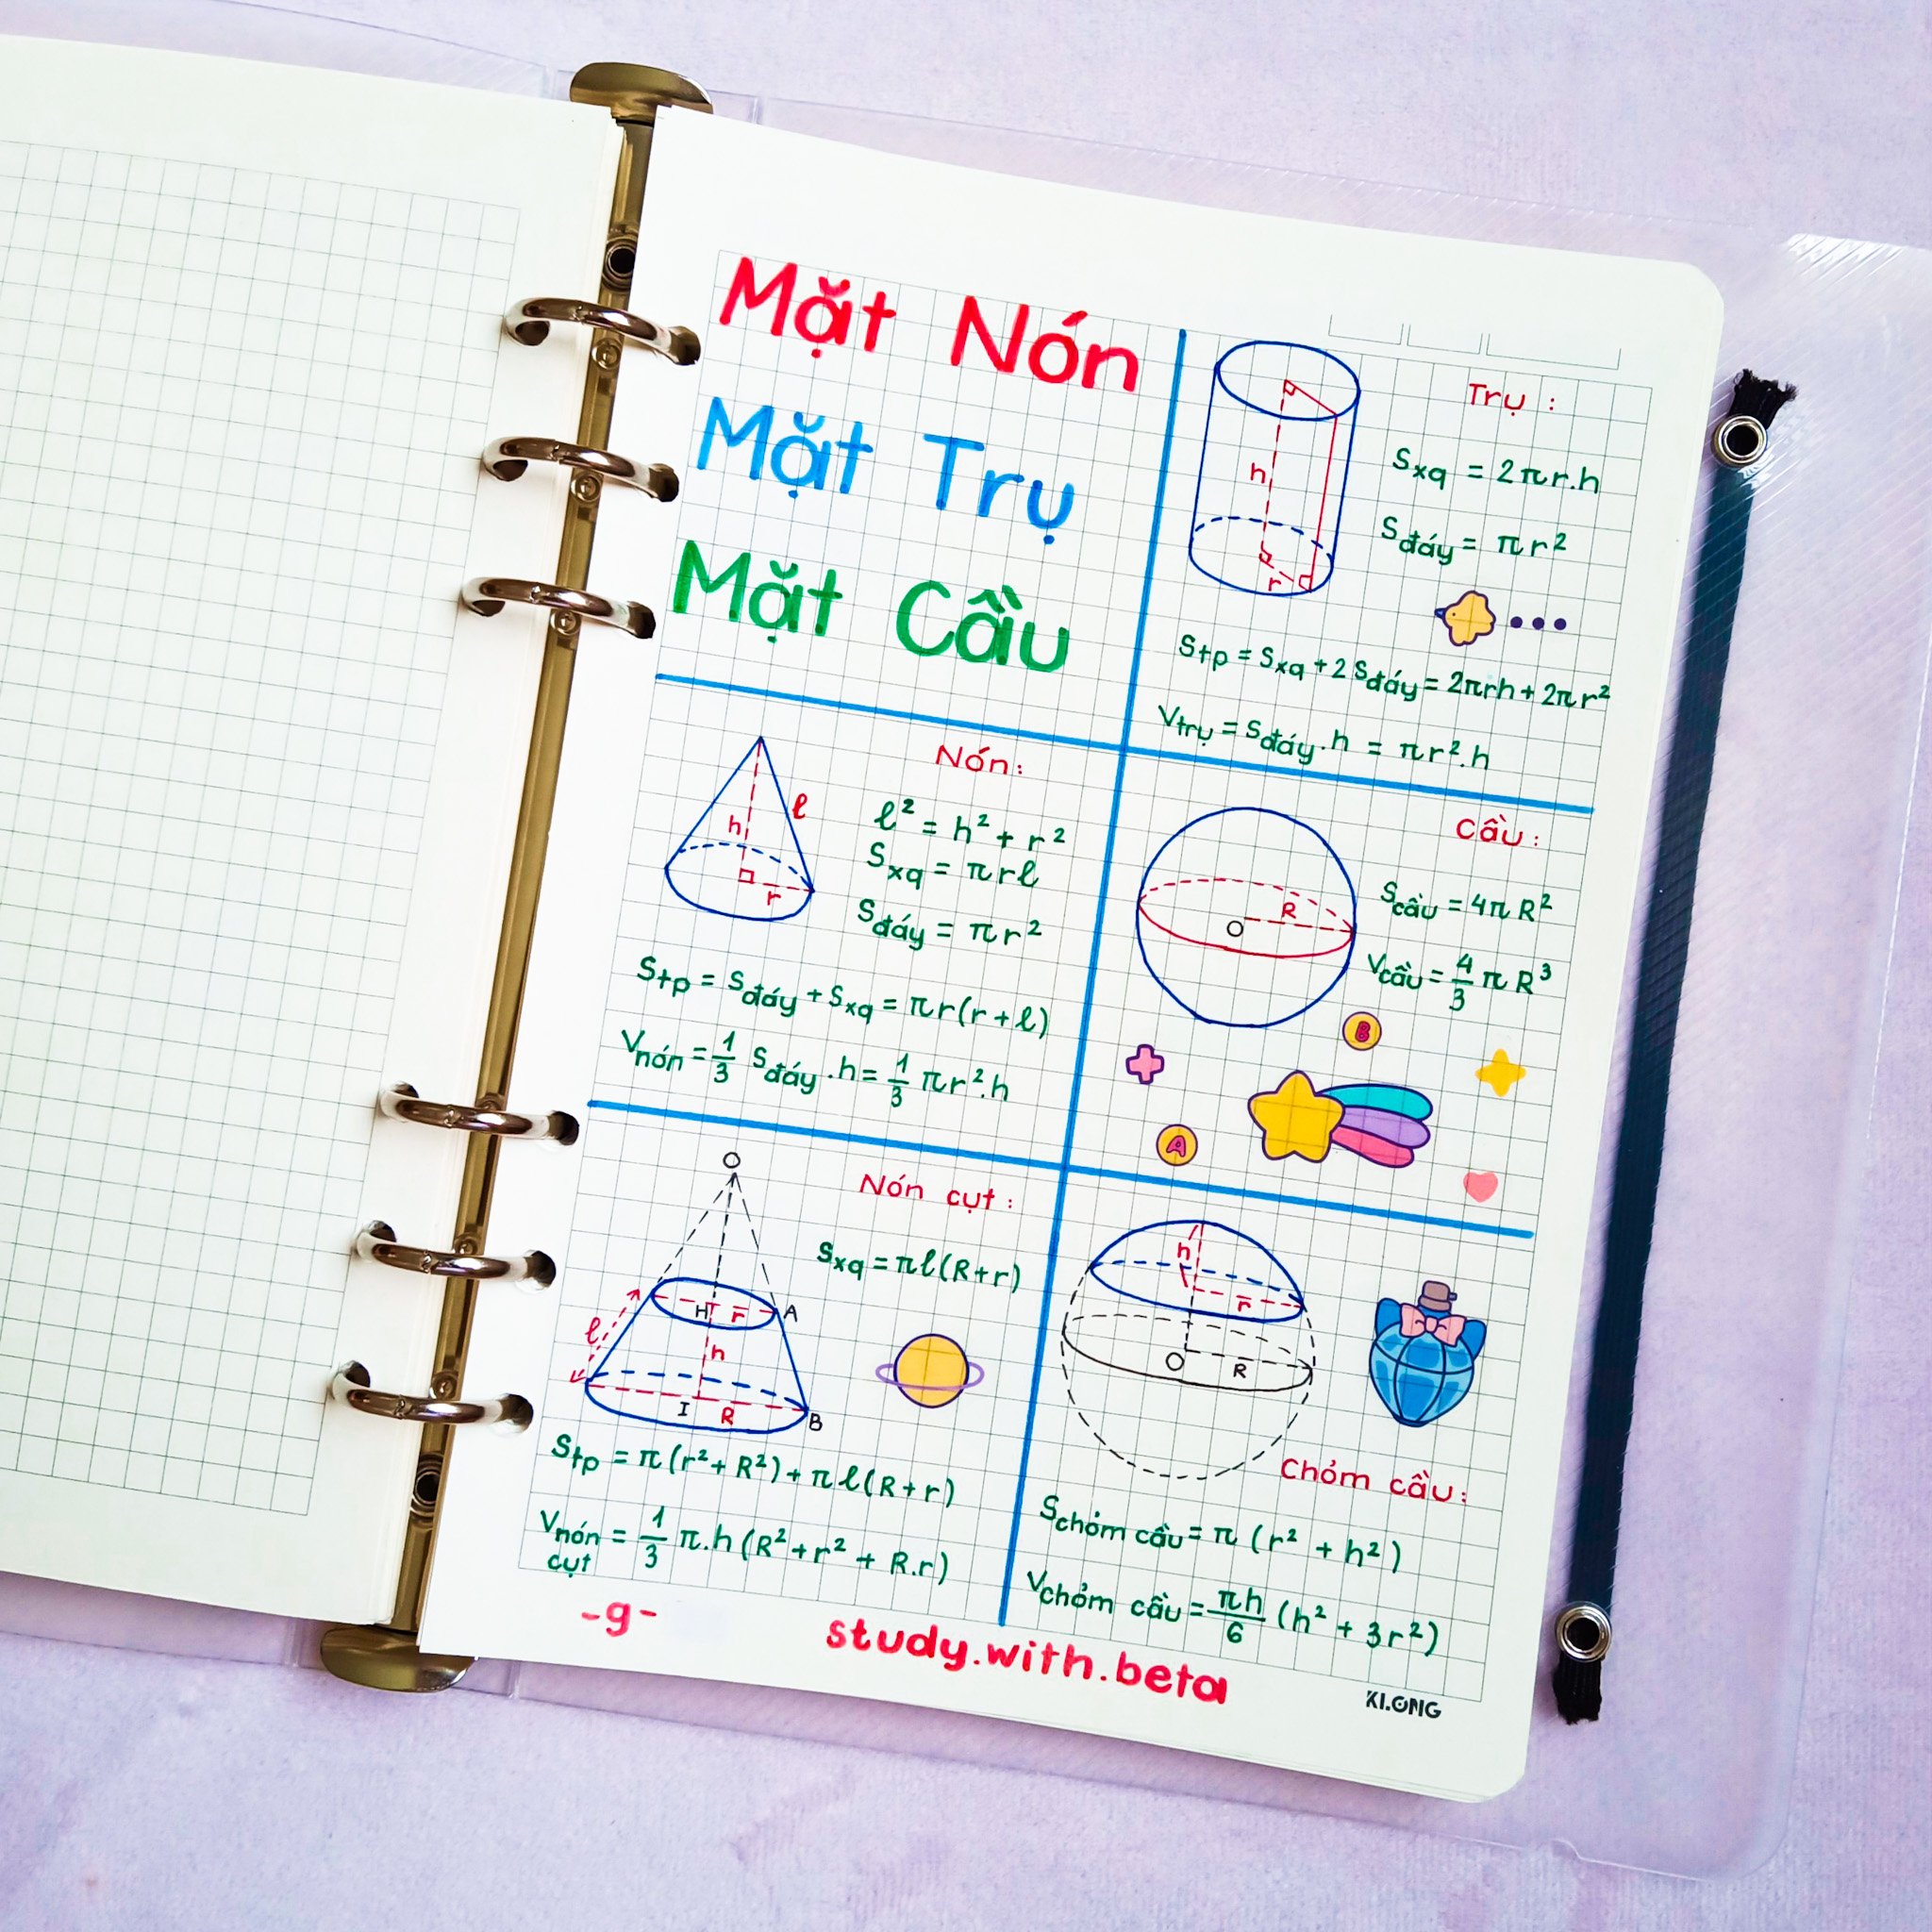 Mặt Nón
Mặt Trụ
Mặt Cầu
Trụ :
h
r
Sxq = 2πr.h
Sđáy = πr²
Stp = Sxq + 2Sđáy = 2πrh + 2πr²
Vtrụ = Sđáy.h = πr².h
Nón:
h
ℓ
r
ℓ² = h² + r²
Sxq = πrℓ
Sđáy = πr²
Stp = Sđáy + Sxq = πr(r+ℓ)
Vnón = 1/3 Sđáy.h = 1/3 πr².h
Cầu:
O
R
Scầu = 4πR²
Vcầu = 4/3 πR³
B
A
Nón cụt:
O
H
r
A
ℓ
h
I
R
B
Sxq = πℓ(R+r)
Stp = π(r²+R²)+πℓ(R+r)
Vnón cụt = 1/3 π.h(R²+r²+R.r)
h
r
O
R
Chỏm cầu:
Schỏm cầu = π(r² + h²)
Vchỏm cầu = πh/6 (h² + 3r²)
-g-
study.with.beta
KLONG